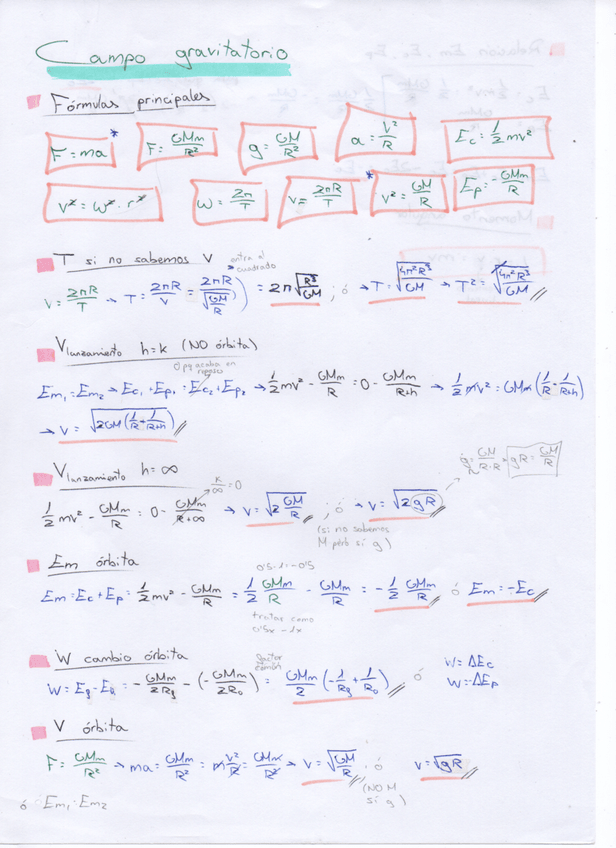 Campo gravitatorio
Fórmulas principales
F = ma * F = GMm/R² g = GM/R² a = V²/R Ec = 1/2 mv²
v² = w² · r² W = 2π/T V = 2πR/T * v² = GM/R Ep = -GMm/R
T si no sabemos V entra al cuadrado
V = 2πR/T → T = 2πR/V = 2πR/√(GM/R) = 2π√(R³/GM) ; ó → T = √(4π²R³/GM) → T² = √(4π²R³/GM)
Vlanzamiento h=k (NO órbita)
0 pq acaba en reposo
Em₁ = Em₂ → Ec₁ + Ep₁ = Ec₂ + Ep₂ → 1/2 mv² - GMm/R = 0 - GMm/R+h → 1/2 mv² = GMm (1/R + 1/R+h)
→ V = √(2GM(1/R + 1/R+h))
Vlanzamiento h=∞
g = GM/R·R → gR = GM/R
1/2 mv² - GMm/R = 0 - GMm/R+∞ k/∞ = 0 → V = √(2 GM/R) ; ó → V = √(2gR)
(si no sabemos M pero si g)
Em órbita
0'5 - 1 = -0'5
Em = Ec + Ep = 1/2 mv² - GMm/R = 1/2 GMm/R - GMm/R = - 1/2 GMm/R ó Em = -Ec
tratar como 0'5x - 1x
W cambio órbita
factor común
W = Eg - E₀ = - GMm/2Rg - (- GMm/2R₀) = GMm/2 (- 1/Rg + 1/R₀) ó W = ΔEc
W = ΔEp
V órbita
F = GMm/R² → ma = GMm/R² = m V²/R = GMm/R² → V = √(GM/R) ; ó V = √gR
(NO M si g)
ó Em₁ = Em₂